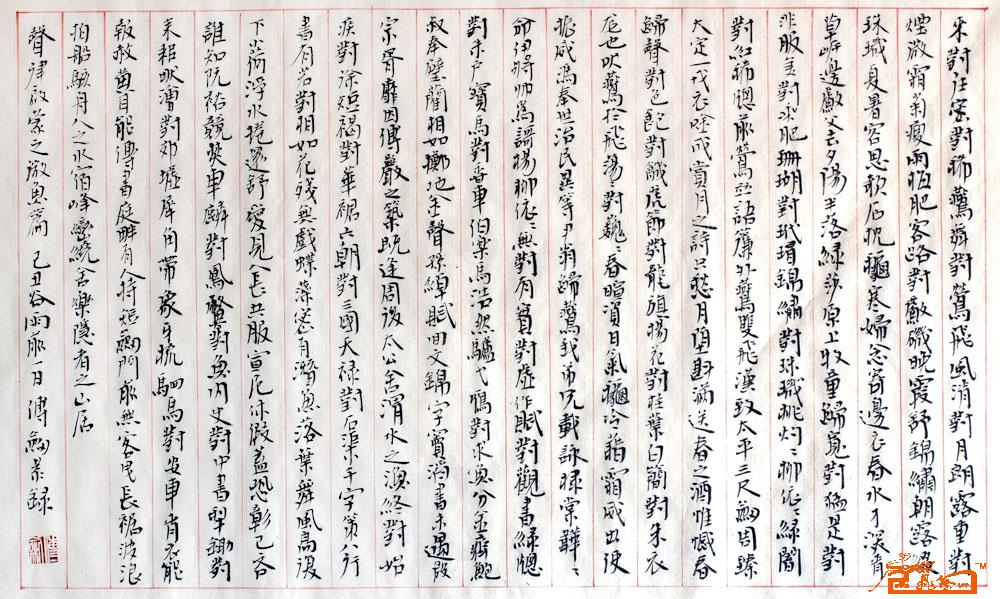 來對往密對稀鷰舞對鶯飛風清對月朗露重對
煙微霜菊瘦雨梅肥客路對漁磯晚霞舒錦繡朝露綴
珠璣夏暑客思欹石枕秋寒婦念寄邊衣春水才深青
草岸邊漁父去夕陽半落綠莎原上牧童歸寬對猛是對
非服美對乘肥珊瑚對玳瑁錦繡對珠璣桃灼灼柳依依綠闇
對紅稀窗前鶯並語簾外鷰雙飛漢致太平三尺劍周臻
大定一戎衣吟成賞月之詩只愁月墮斟滿送春之酒惟憾春
歸聲對色飽對飢虎節對龍旗楊花對桂葉白簡對朱衣
尨也吠鷰于飛蕩蕩對巍巍春暄資日氣秋冷借霜威出使
振威馮奉世治民異等尹翁歸鷰我弟兄載詠棣棠韡韡
命伊將帥為謌楊柳依依無對有實對虛作賦對觀書綠窗
對朱戶寶馬對香車伯樂馬浩然驢弋鴈對求魚分金齊鮑
叔奉璧藺相如擲地金聲孫綽賦回文錦字竇滔書未遇殷
宗胥靡困傅巖之築既逢周後太公舍渭水之漁終對始
疾對徐短褐對華裾六朝對三國天祿對石渠千字策八行
書有若對相如花殘無戲蝶藻密有潛魚落葉舞風高復
下小荷浮水捲還舒愛見人長共服宣尼休假蓋恐彰己吝
誰知阮裕競焚車麟對鳳鱉對魚內史對中書犁鋤對
耒耜畎澮對郊墟犀角帶象牙梳駟馬對安車青衣能
報赦黃耳能傳書庭畔有人持短劍門前無客曳長裾波浪
拍船駭舟人之水宿峰巒繞舍樂隱者之山居
聲律啟蒙之微魚篇 己丑谷雨前一日傅劍景錄